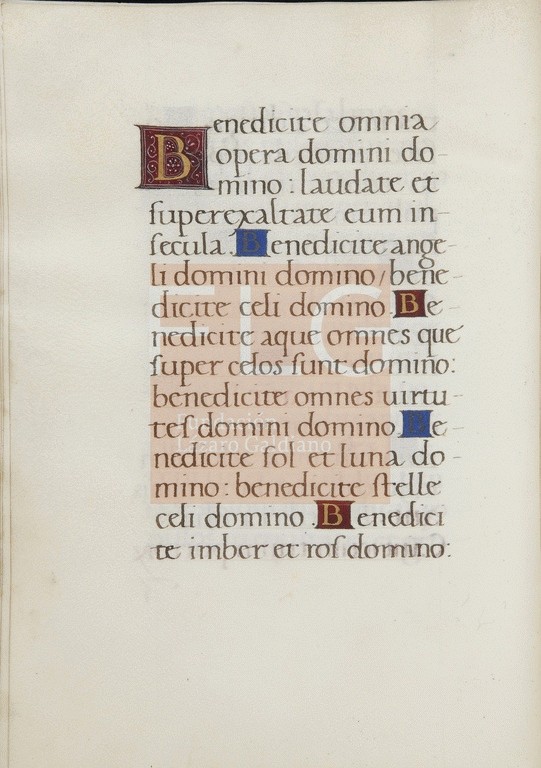 Benedicite omnia
opera domini do-
mino : laudate et
ſuperexaltate eum in-
ſecula. Benedicite ange-
li domini domino / bene-
dicite celi domino. Be-
nedicite aque omnes que
ſuper celos ſunt domino:
benedicite omnes uirtu-
teſ domini domino. Be-
nedicite ſol et luna do-
mino : benedicite ſtelle
celi domino. Benedici
te imber et roſ domino:
FLG
Fundación
Lázaro Galdiano